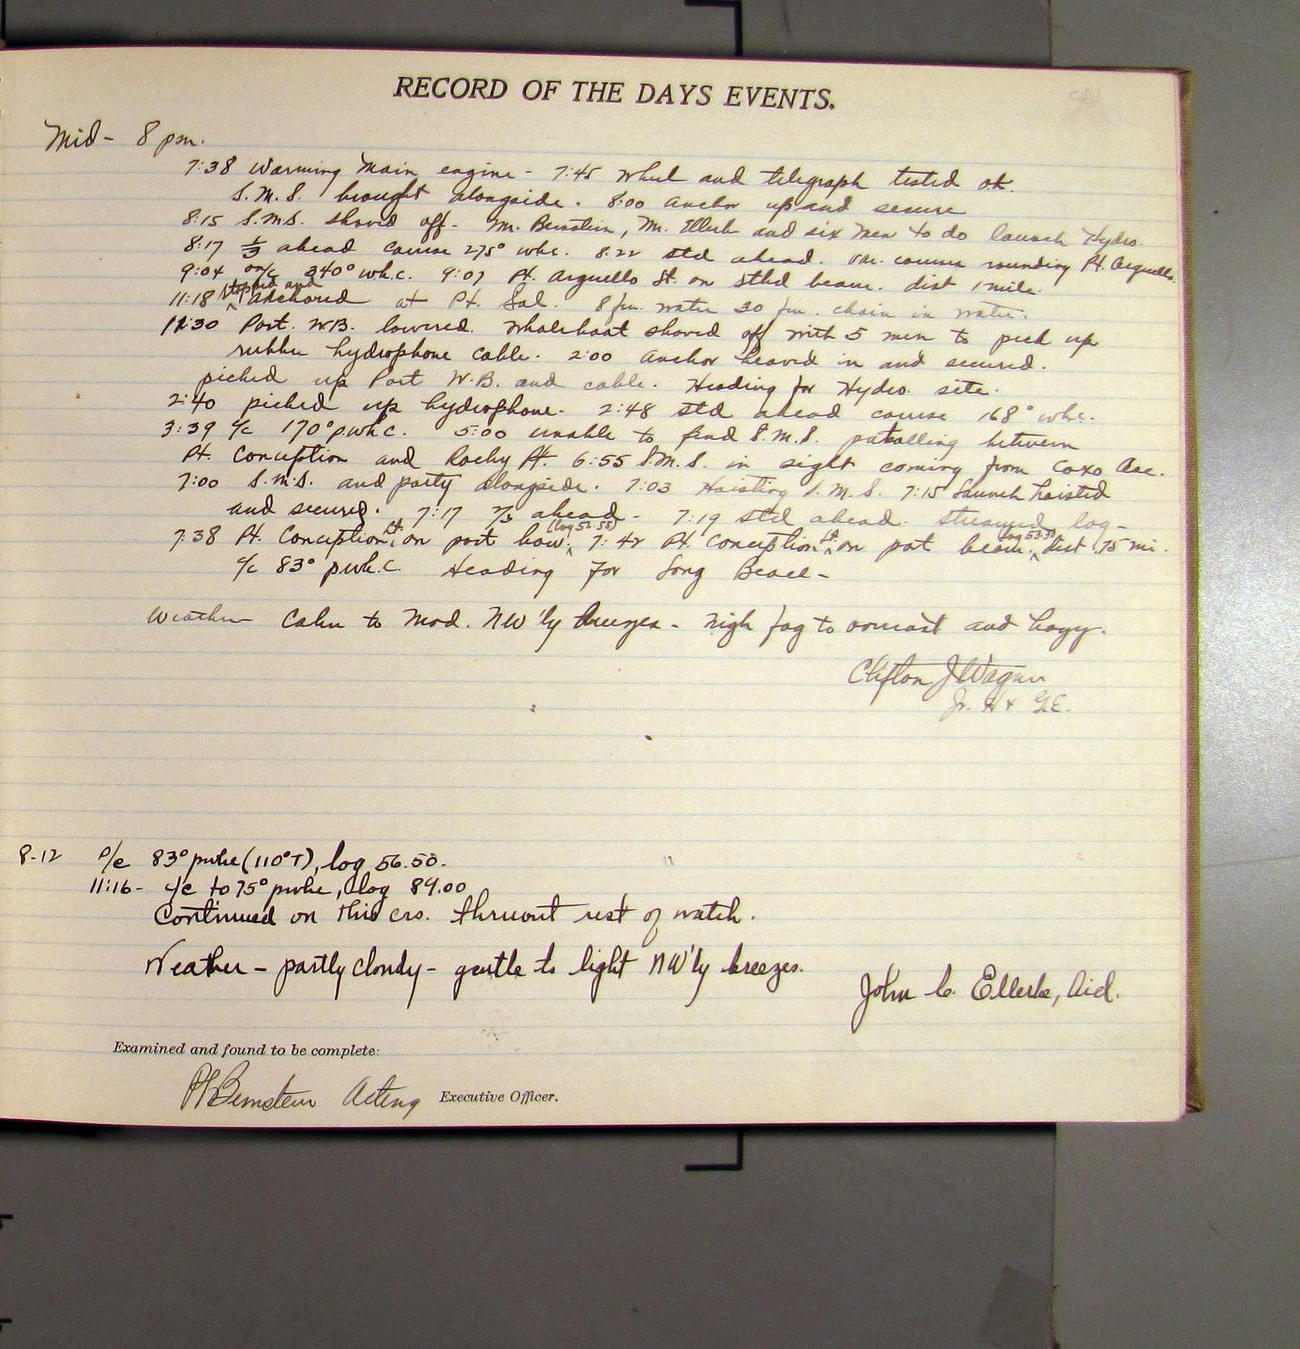 RECORD OF THE DAYS EVENTS.
Mid - 8 pm.
7:38 Warming Main engine - 7:45 Wheel and telegraph tested ok.
S.M.S. brought alongside. 8:00 anchor up and secure
8:15 S.M.S. shoved off - Mr. Bernstein, Mr. Ellerbe and six men to do launch Hydro.
8:17 1/3 ahead course 275° whc. 8:22 std ahead. Var. courses rounding Pt. Arguello.
9:04 on/c 340° wh.c. 9:07 Pt. Arguello Lt. on stbd beam. dist 1 mile.
11:18 stopped and anchored at Pt. Sal. 8 fm. water 30 fm. chain in water.
12:30 Port. W.B. lowered. Whaleboat shoved off with 5 men to pick up
rubber hydrophone cable. 2:00 anchor heaved in and secured.
picked up Port W.B. and cable. Heading for Hydro. site.
2:40 picked up hydrophone. 2:48 std ahead course 168° whc.
3:39 c/c 170° pwhc. 5:00 unable to find S.M.S. patrolling between
Pt. Conception and Rocky Pt. 6:55 S.M.S. in sight coming from Coxo Anc.
7:00 S.M.S. and party alongside. 7:03 Hoisting S.M.S. 7:15 Launch hoisted
and secured. 7:17 2/3 ahead - 7:19 std ahead. streamed log -
7:38 Pt. Conception Lt. on port bow, 7:42 Pt. Conception Lt. on port beam, dist .75 mi.
c/c 83° pwh.c. Heading for Long Beach -
Weather Calm to Mod. NW'ly breezes - high fog to overcast and hazy.
Clifton J Wagner
Jr. H & G.E.
8-12 P/c 83° pwhc (110° T), log 56.50.
11:16 - c/c to 75° pwhc, log 84.00
Continued on this crs. thruout rest of watch.
Weather - partly cloudy - gentle to light NW'ly breezes.
John C. Ellerbe, Aid.
Examined and found to be complete:
Bernstein Acting Executive Officer.